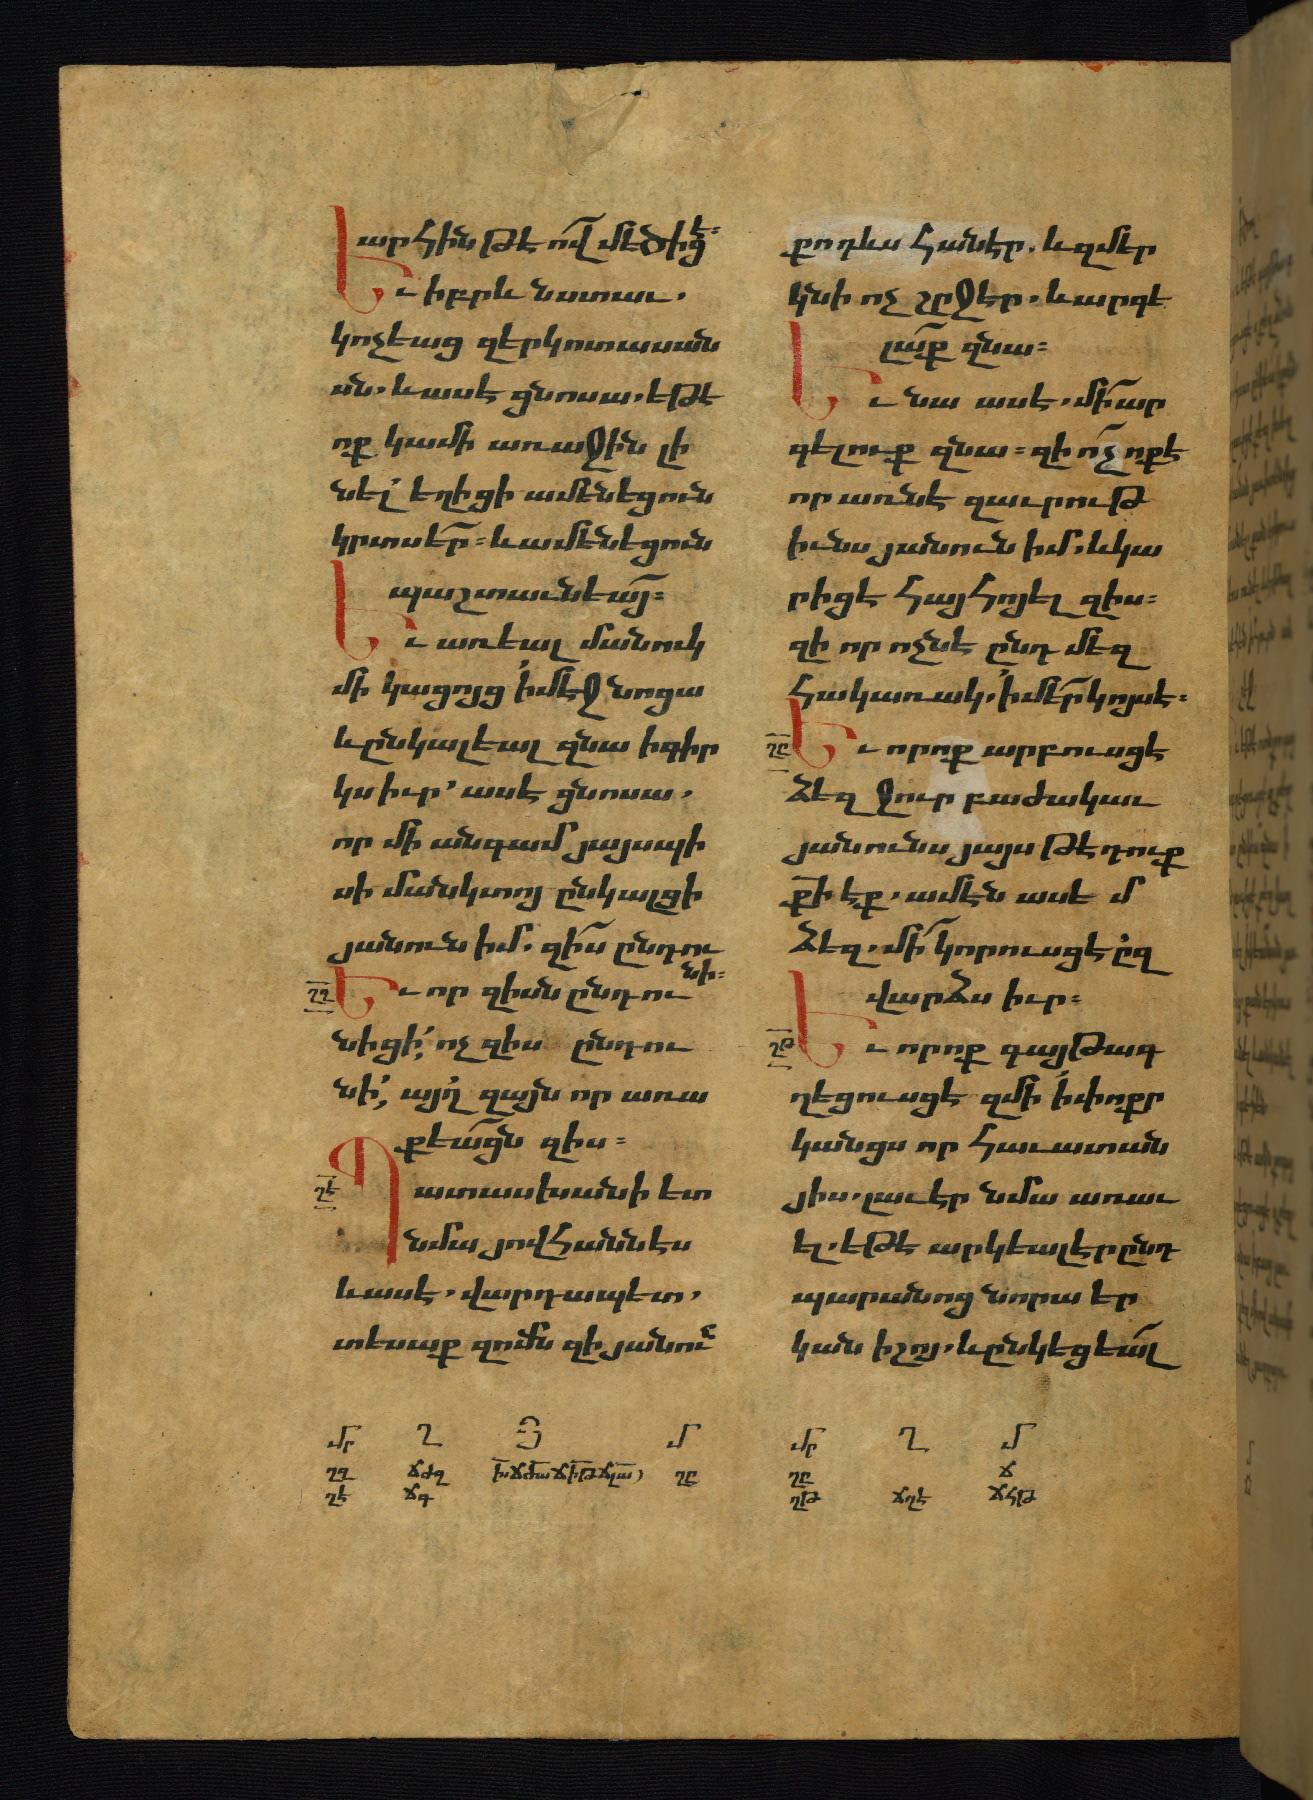 արհին թէ ո՛վ մեծիցէ։
Եւ իբրև նստաւ.
կոչեաց զերկոտասան
սն. և ասէ ցնոսա. եթէ
ոք կամի առաջին լի
նել՝ եղիցի ամենեցուն
կրտսե՛ր։ և ամենեցուն
պաշտաւնեա՛յ։
Եւ առեալ մանուկ
մի կացոյց ՛ի մէջ նոցա
և ընկալեալ զնա ի գիր
կս իւր՝ ասէ ցնոսա.
որ մի անգամ յայսպի
սի մանկտոյ ընկալցի
յանուն իմ. զի՛ս ընդու
նի։
ՂԶ Եւ որ զիսն ընդու
նիցի՛, ոչ զիս ընդու
նի՛, այղ զայն որ առա
քեա՛ցն զիս։
ՂԷ Պատասխանի ետ
նմա յովհաննէս
և ասէ. վարդապետ.
տեսաք զոմն զի յանուն
քո դևս հանէր. և զմեր
կնի ոչ շրջէր. և արգե
լա՛ք զնա։
Եւ նա ասէ. մի՛ ար
գելուք զնա։ զի ո՛չ ոք է
որ առնէ զաւրութ
իւնս յանուն իմ. և կա
րիցէ հայհոյել զիս։
զի որ ոչն է ընդ մեզ
հակառակ. ՛ի մե՛ր կոյս է։
ՂԸ Եւ որ ոք արբուսցէ
ձեզ ջուր բաժակաւ
յանունս յայս թէ դուք
ք՟ի էք. ամէն ասեմ
ձեզ. մի՛ կորուսցէ ըզ
վարձս իւր։
ՂԹ Եւ որ ոք գայթագ
ղեցուսցէ զմի ՛ի փոքր
կանցս որ հաւատան
յիս. լաւ էր նմա առաւ
ել. եթէ արկեալ էր ընդ
պարանոց նորա եր
կան իշոյ. և ընկեցեա՛լ
մր Ղ Յ մ մր Ղ մ
ՂԶ ՃԺԶ ՂԸ ՂԸ Ճ
ՂԷ ՃԳ ՂԹ ՃՂԷ ՃՀԹ